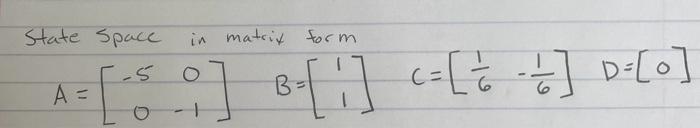 State Space in matrix form
A = [-5 0; 0 -1] B = [1; 1] C = [1/6 -1/6] D = [0]